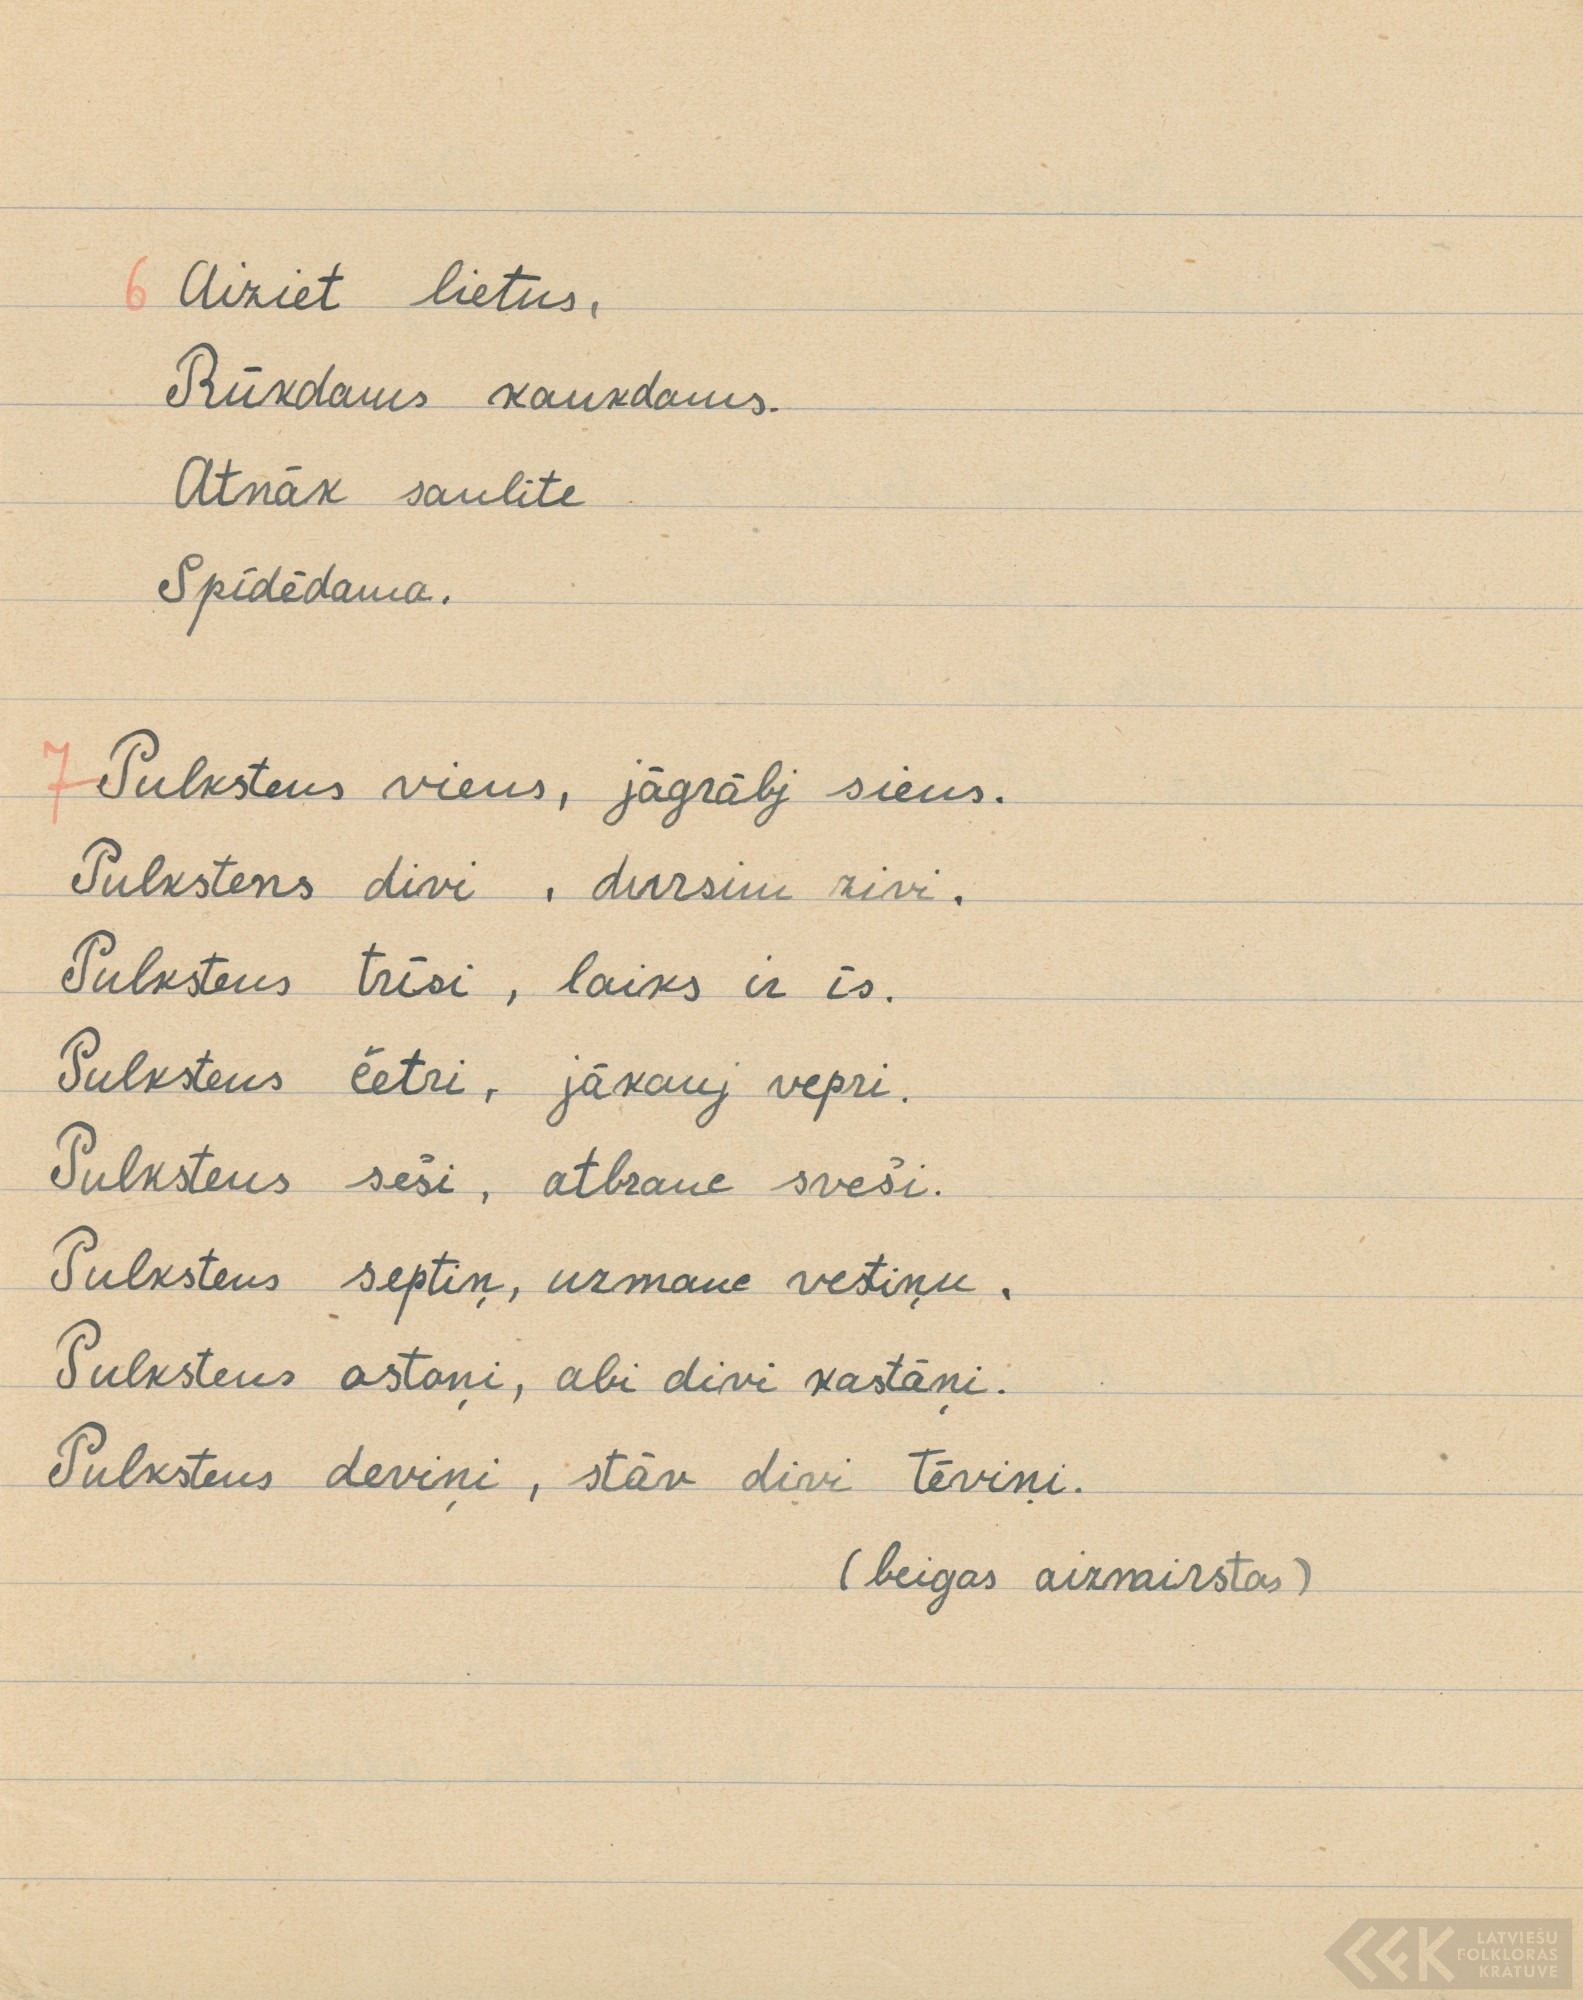 6 Aiziet lietus,
Rūkdams kaukdams.
Atnāk saulite
Spīdēdama.
7 Pulkstens viens, jāgrābj siens.
Pulkstens divi, dursim zivi.
Pulkstens trīsi, laiks ir īs.
Pulkstens četri, jākauj vepri.
Pulkstens seši, atbrauc sveši.
Pulkstens septiņ, uzmauc vestiņu.
Pulkstens astoņi, abi divi kastāņi.
Pulkstens deviņi, stāv divi tēviņi.
(beigas aizmirstas)
LATVIEŠU
FOLKLORAS
KRĀTUVE